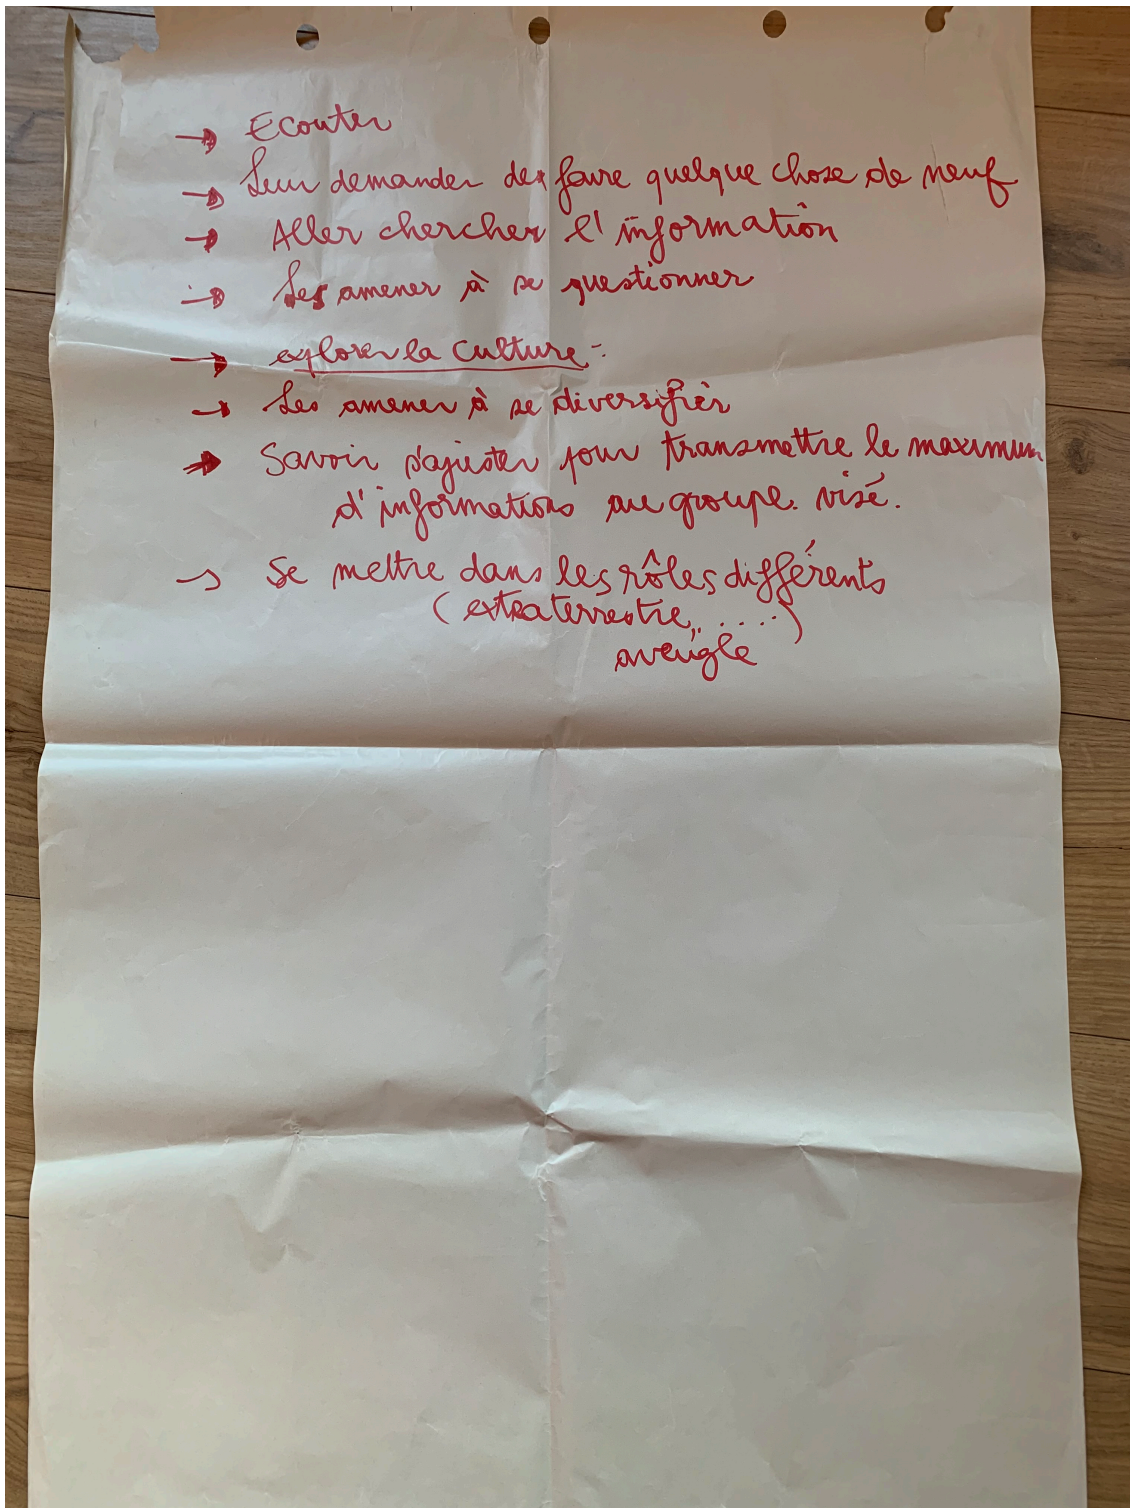 → Ecouter
→ Leur demander de faire quelque chose de neuf
→ Aller chercher l'information
→ Les amener à se questionner
→ explorer la culture -
→ Les amener à se diversifier
→ Savoir s'ajuster pour transmettre le maximum
d'informations au groupe. visé.
→ Se mettre dans les rôles différents
(extraterrestre, ....)
aveugle